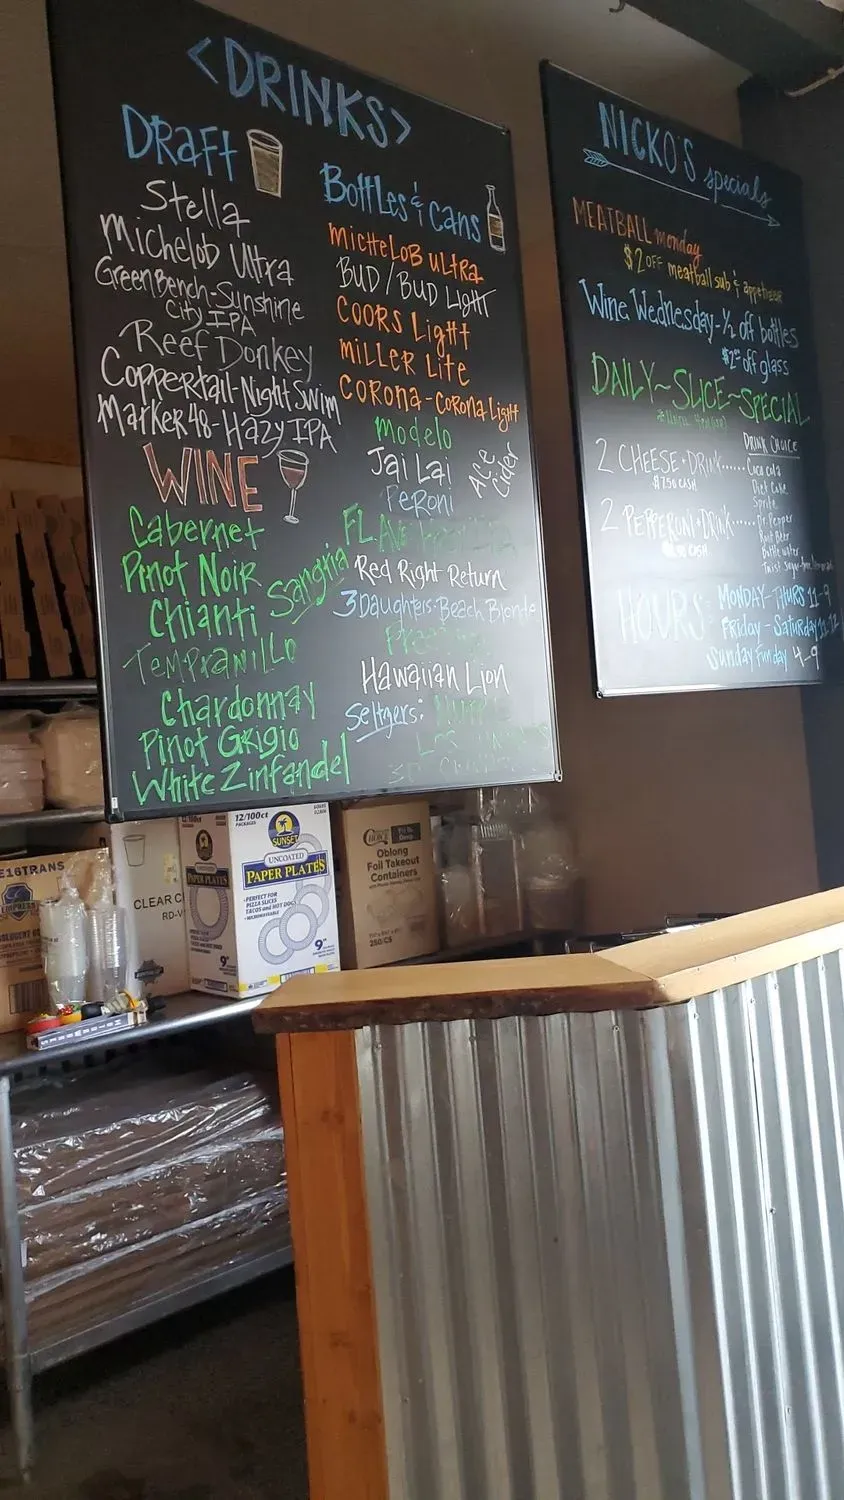 <DRINKS>
DRAFT
Stella
Michelob Ultra
Green Bench-Sunshine
City IPA
Reef Donkey
Coppertail-Night Swim
Marker 48-Hazy IPA
WINE
Cabernet
Pinot Noir
Chianti
Sangria
Tempranillo
Chardonnay
Pinot Grigio
White Zinfandel
Bottles & Cans
MICHELOB ULTRA
BUD / BUD Light
COORS Light
MILLER LITE
CORONA-CORONA Light
Modelo
Jai Lai
Ace Cider
PERONI
FL
Red Right Return
3 Daughters-Beach Blonde
Hawaiian Lion
Seltzers:
NICKO'S specials
MEATBALL monday
$2 OFF meatball sub & appetizer
Wine Wednesday-½ off bottles
$2 off glass
DAILY~SLICE~SPECIAL
2 CHEESE + DRINK......
$7.50 CASH
2 PEPPERONI + DRINK......
CASH
DRINK CHOICE
Coca cola
Diet Coke
Sprite
Dr. Pepper
Root Beer
Bottle water
HOURS: MONDAY-THURS 11-9
Friday-Saturday
Sunday Funday 4-9
E16TRANS
EMPRESS
CLEAR C
RD-
12/100ct
PACKAGES
SUNSET
UNCOATED
PAPER PLATES
•PERFECT FOR
PIZZA SLICES
TACOS and HOT DOGS
•MICROWAVEABLE
9"
PAPER PLATES
9"
CHOICE
Oblong
Foil Takeout
Containers
250/CS